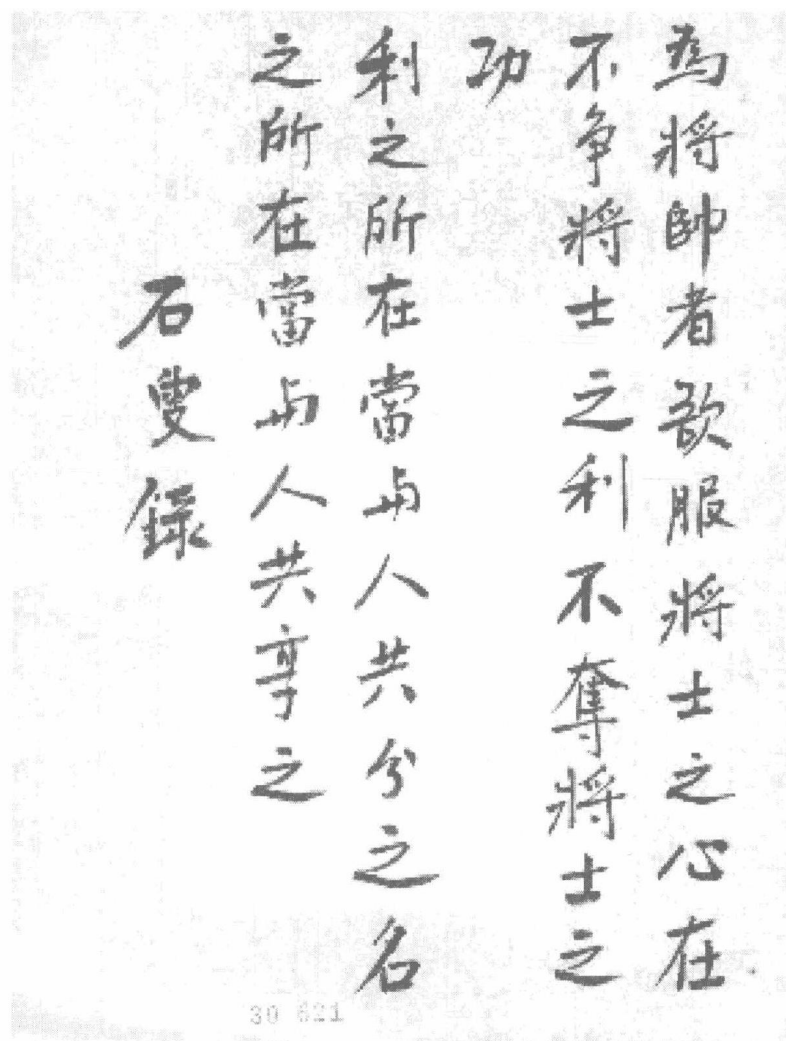 為將帥者欲服將士之心在
不爭將士之利不奪將士之
功
利之所在當与人共分之名
之所在當与人共享之
石叟錄
30 621